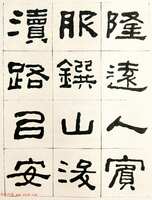 隆遠人賓
服鐫山浚
瀆路以安